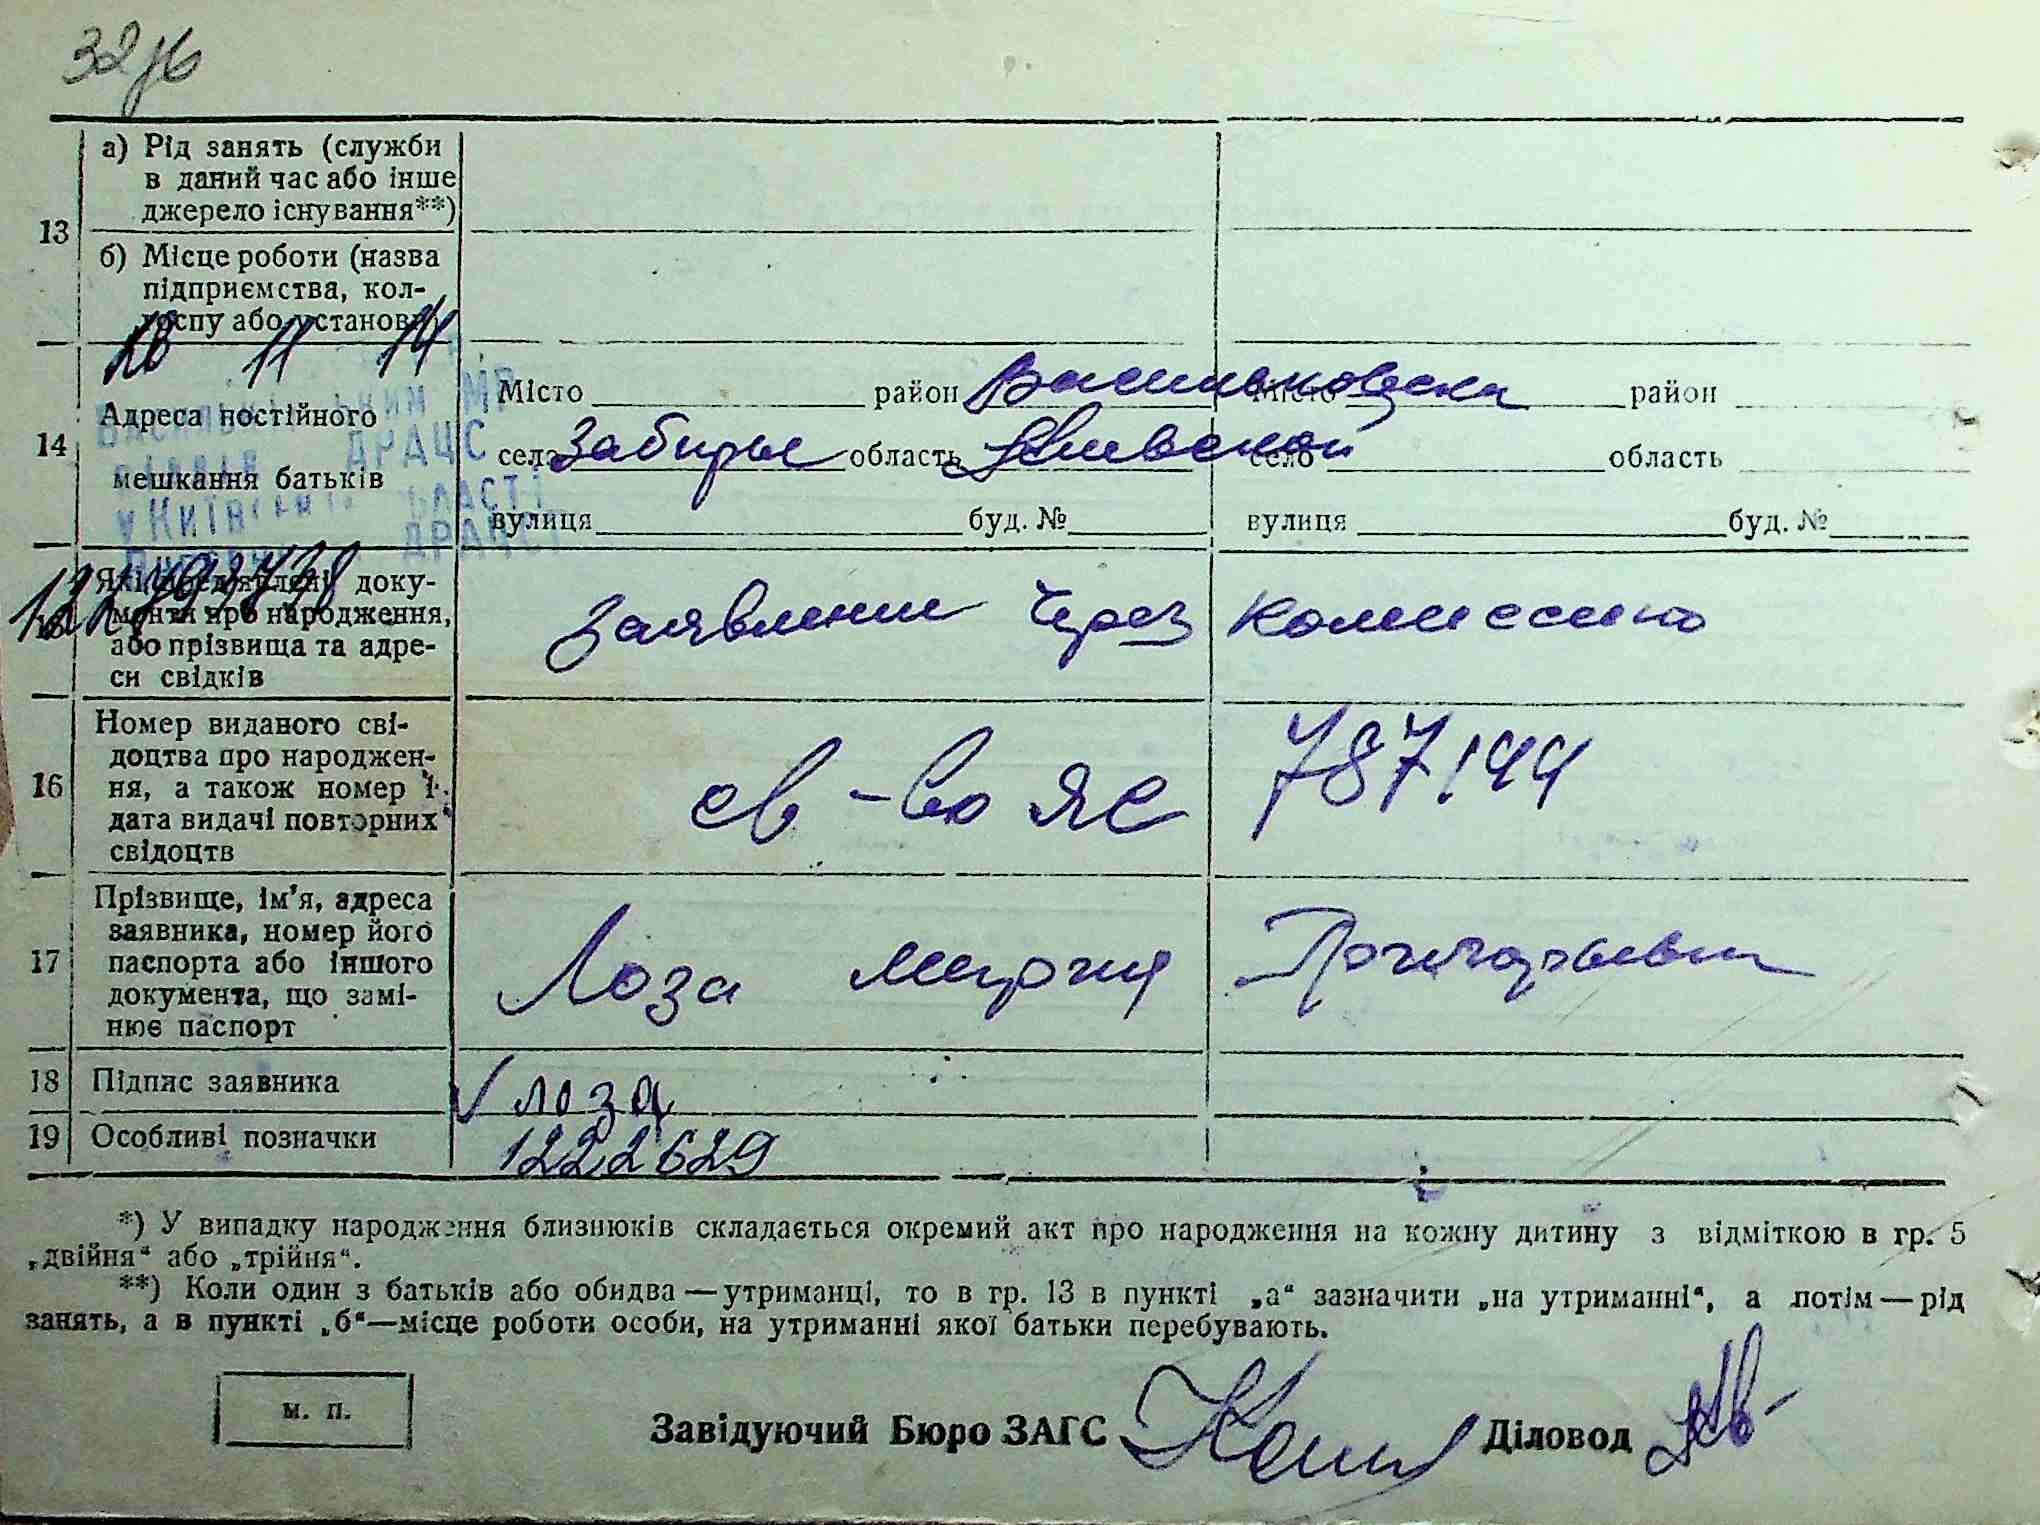 32
а) Рід занять (служби
в даний час або інше
джерело існування**)
13
б) Місце роботи (назва
підприємства, кол-
госпу або установи)
18 11 14
14
Адреса постійного
мешкання батьків
Місто район Васильковский Місто район
село Забирье область Киевской село область
вулиця буд. № вулиця буд. №
ДРАЦС
Які пред'явлені доку-
менти про народження,
або прізвища та адре-
си свідків
заявление через комиссию
16
Номер виданого сві-
доцтва про народжен-
ня, а також номер і
дата видачі повторних
свідоцтв
св-во ЯС 787144
17
Прізвище, ім'я, адреса
заявника, номер його
паспорта або іншого
документа, що замі-
нює паспорт
Лоза Мария Григорьевна
18 Підпис заявника
Лоза
19 Особливі позначки
1222629
*) У випадку народження близнюків складається окремий акт про народження на кожну дитину з відміткою в гр. 5
„двійня“ або „трійня“.
**) Коли один з батьків або обидва—утриманці, то в гр. 13 в пункті „а“ зазначити „на утриманні“, а потім—рід
занять, а в пункті „б“—місце роботи особи, на утриманні якої батьки перебувають.
м. п.
Завідуючий Бюро ЗАГС Діловод